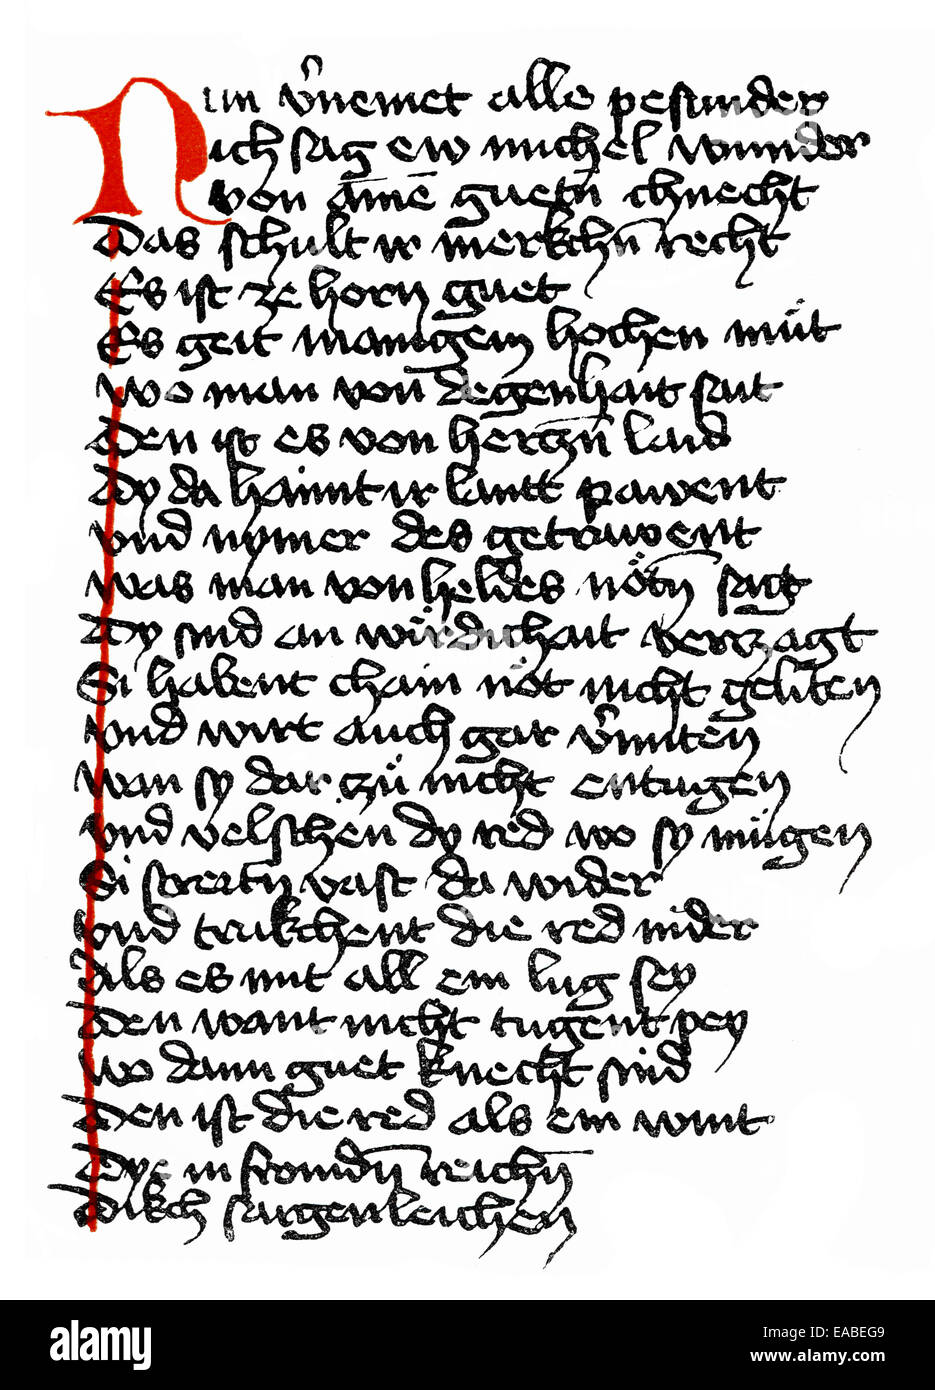 Nun v̾nemet alle pesunder
ich sag ew michel wunder
von ainē guetn̄ chnecht
Das schult ir merkchn̄ recht
Es ist ze horn guet
Es geit manigem hochen můt
Wo man von degenhait sait
Den ist es von herczn̄ laid
Dy da haimt ir lantt pawent
vnd nymer des getrawent
was man von heldes nötn̄ sagt
Dy sind an wirdichait verczagt
Si habent chain not nicht geliten
vnd wirt auch gar v̾miten
wan sy dar zů nicht entugen
vnd velschen dy red wo sy mügen
Si streitn vast da wider
vnd trukchent die red nider
Als es mit all ein lug sey
Den want nicht tugent pey
wo dann guet knecht sind
Den ist die red als ein wint
Dye in fromdn̄ reichn̄
Dikch
alamy
Image ID: EABEG9
www.alamy.com